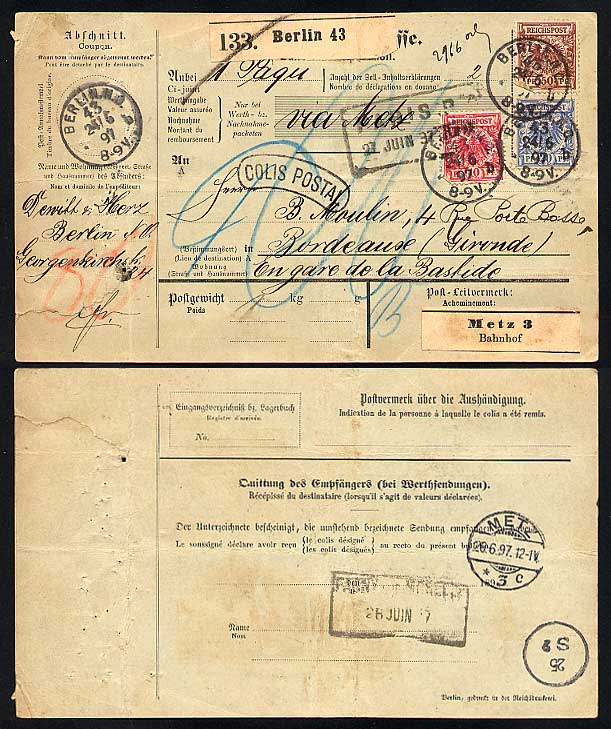 Abschnitt.
Coupon.
Kann vom Empfänger abgetrennt werden.
Peut être détaché par le destinataire.
133. Berlin 43
2
REICHSPOST
An bei
Ci-joint
Anzahl der Zoll-Inhaltserklärungen
Nombre de déclarations en douane:
2
Werthangabe
Valeur assurée
Nachnahme
Montant du remboursement
Nur bei
Werth- bz.
Nachnahme-
packeten
via Metz
27 JUIN
REICHSPOST
REICHSPOST
BERLIN N.O.
43
24/6
97
8-9V.
An
A
COLIS POSTAL
Herrn
B. Moulin, 4 Rue Porte Basse
(Bestimmungsort) in
(Lieu de destination) à
Bordeaux (Gironde)
Wohnung
(Straße und Hausnummer)
En gare de la Bastide
Name und Wohnung (Ort, Straße und Hausnummer) des Absenders:
Nom et domicile de l'expéditeur:
Dewitt & Herz
Berlin N.O.
Georgenkirchstr.
24
Postgewicht kg g
Poids
Post-Leitvermerk:
Acheminement:
Metz 3
Bahnhof
Eingangsverzeichniß bz. Lagerbuch
Registre d'arrivée.
No.
Postvermerk über die Aushändigung.
Indication de la personne à laquelle le colis a été remis.
Quittung des Empfängers (bei Werthsendungen).
Récépissé du destinataire (lorsqu'il s'agit de valeurs déclarées).
Der Unterzeichnete bescheinigt, die umstehend bezeichnete Sendung empfangen
Le soussigné déclare avoir reçu {le colis désigné
{les colis désignés} au recto du présent
METZ
26.6.97.12-1V.
* 3 c
28 JUIN 97
Name
Nom
25
S 2
Berlin, gedruckt in der Reichsdruckerei.